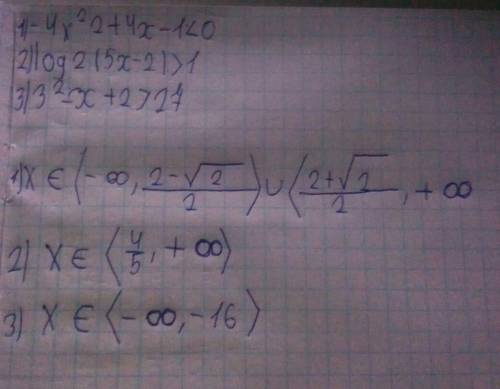 1) -4x²2+4x-1<0
2) log2(5x-2)>1
3) 3²-x+2>27
1) X ∈ ⟨-∞, (2-√2)/2⟩ ∪ ⟨(2+√2)/2, +∞
2) X ∈ ⟨4/5, +∞⟩
3) X ∈ ⟨-∞, -16⟩